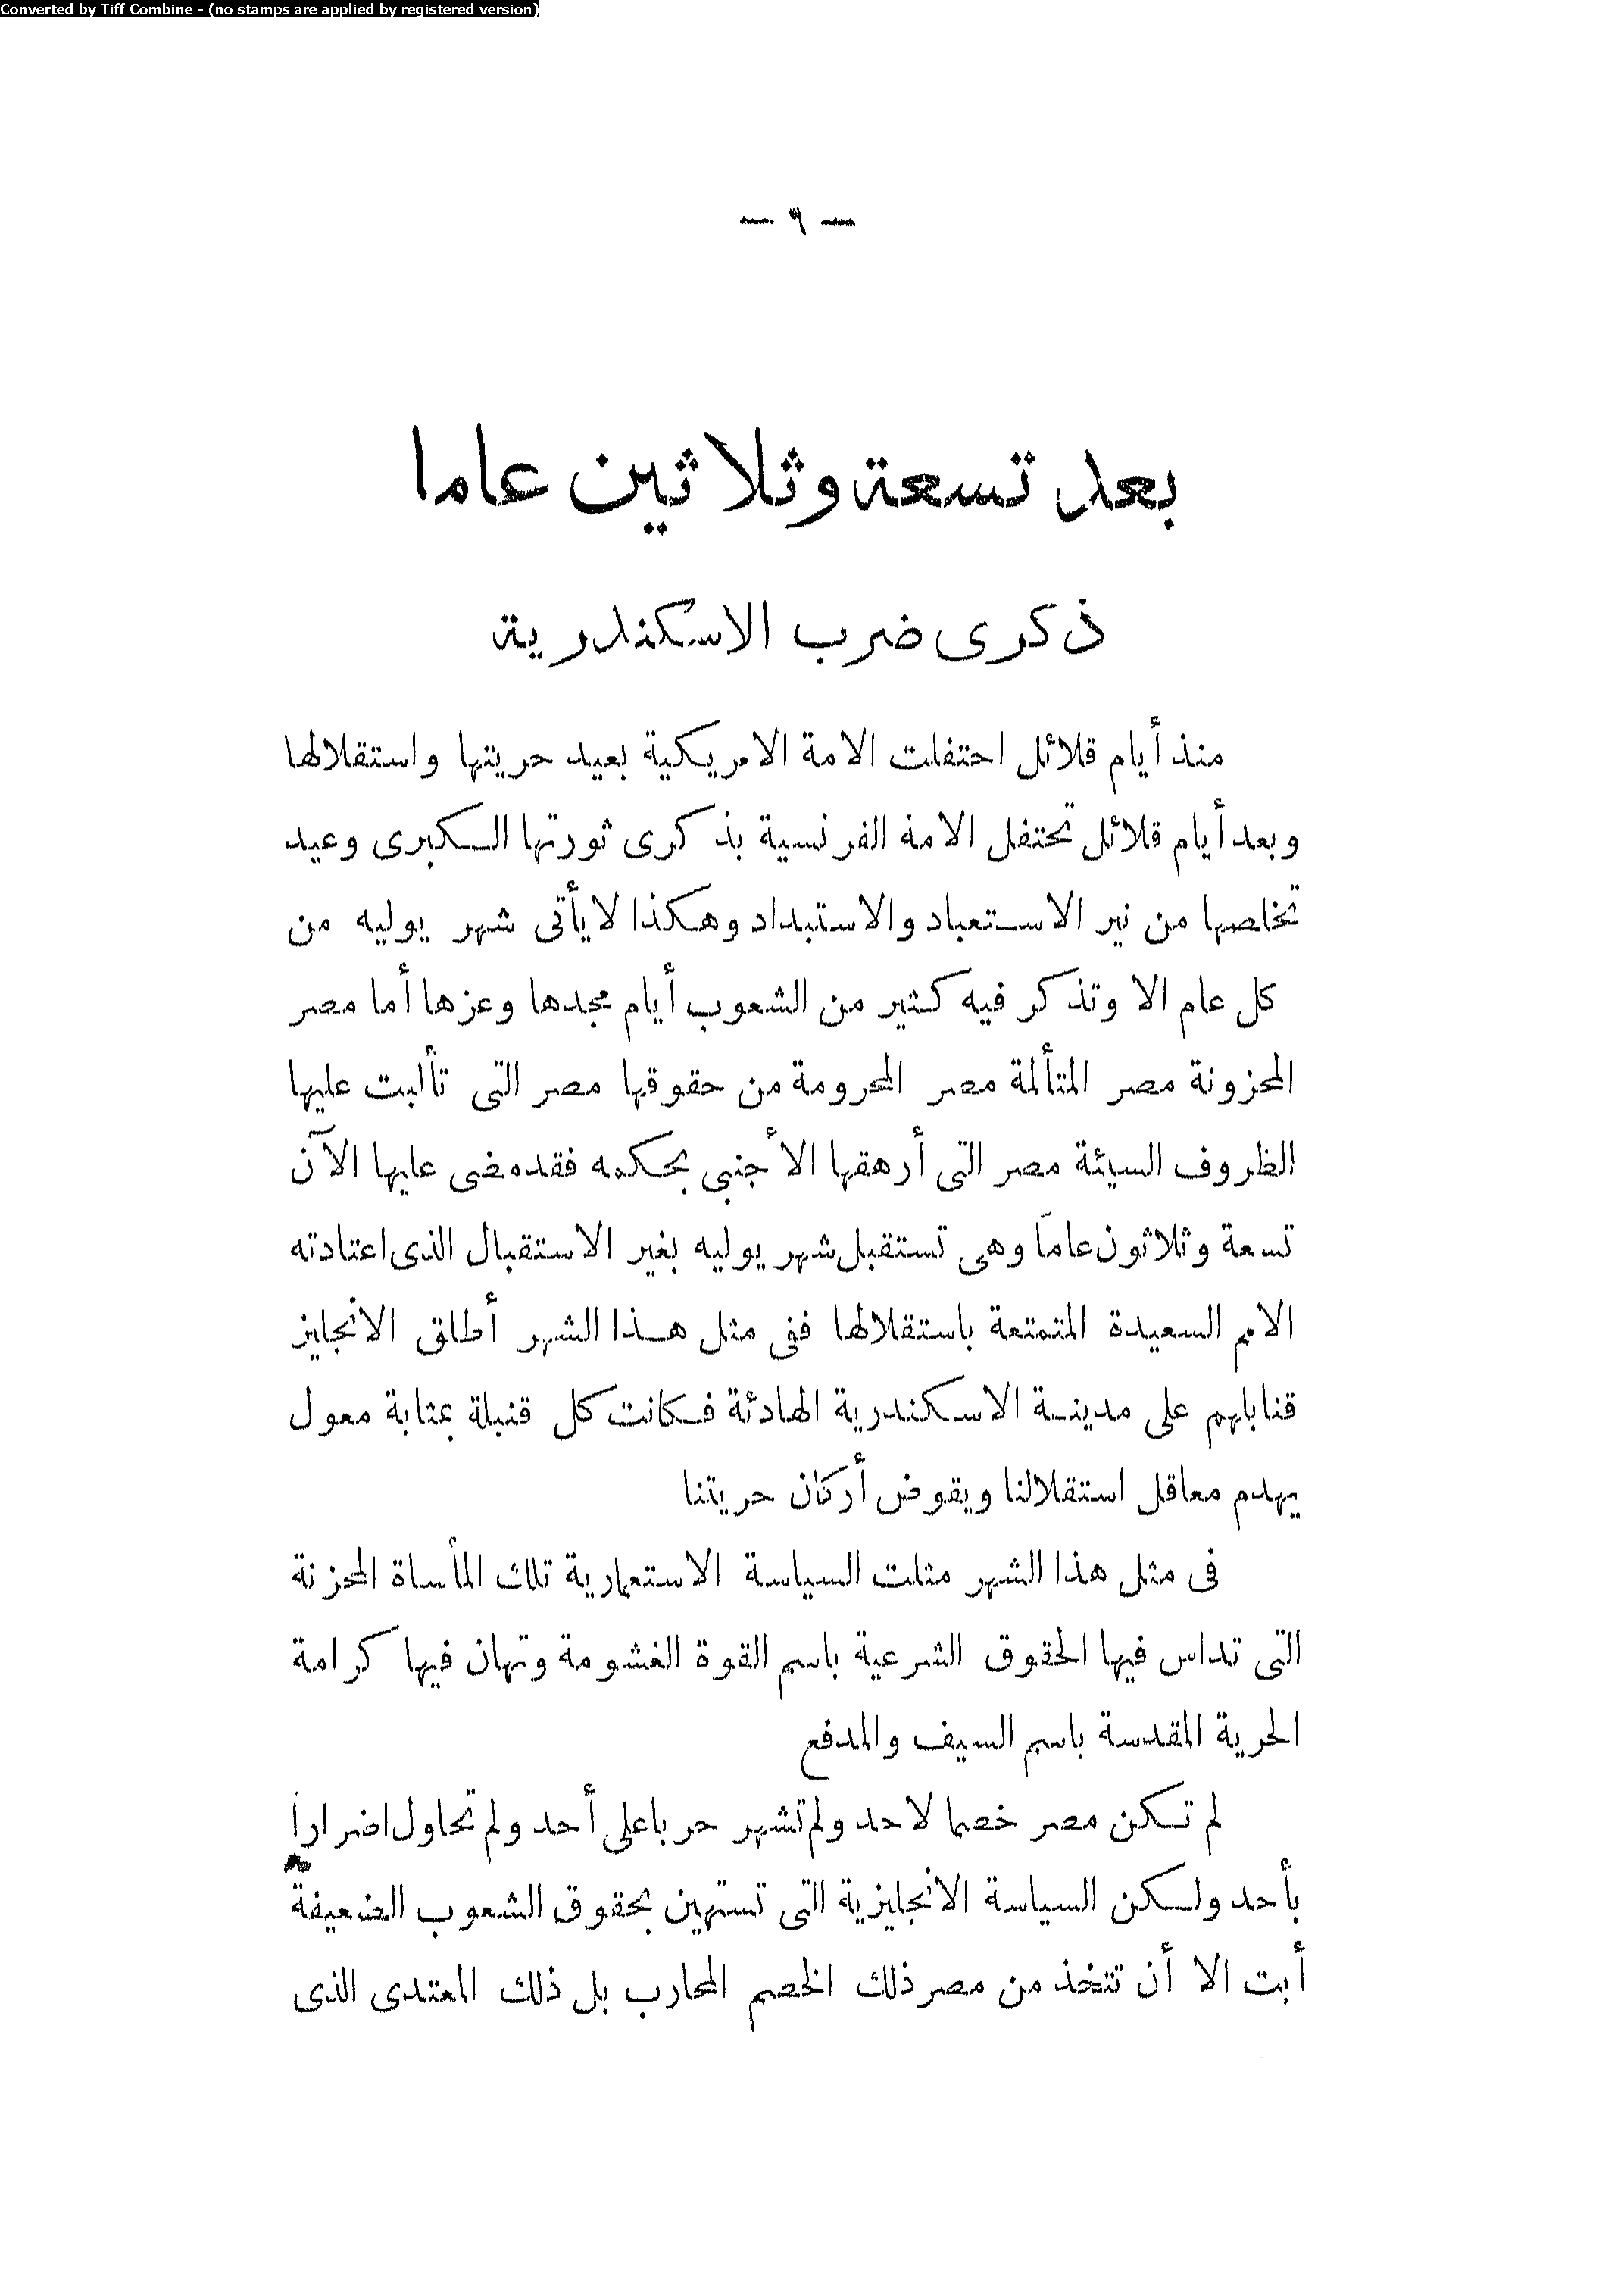 Converted by Tiff Combine - (no stamps are applied by registered version)
— ٩ —
بعد تسعة وثلاثين عاما
ذكرى ضرب الاسكندرية
منذ أيام قلائل احتفلت الامة الامريكية بعيد حريتها واستقلالها
وبعد أيام قلائل تحتفل الامة الفرنسية بذكرى ثورتها الكبرى وعيد
تخلصها من نير الاستعباد والاستبداد وهكذا لا يأتى شهر يوليه من
كل عام الا وتذكر فيه كثير من الشعوب أيام مجدها وعزها أما مصر
المحزونة مصر المتألمة مصر المحرومة من حقوقها مصر التى تألبت عليها
الظروف السيئة مصر التى أرهقها الأجنبى بحكمه فقد مضى عليها الآن
تسعة وثلاثون عاماً وهى تستقبل شهر يوليه بغير الاستقبال الذى اعتادته
الامم السعيدة المتمتعة باستقلالها ففى مثل هذا الشهر أطلق الانجليز
قنابلهم على مدينة الاسكندرية الهادئة فكانت كل قنبلة بمثابة معول
يهدم معاقل استقلالنا ويقوض أركان حريتنا
فى مثل هذا الشهر مثلت السياسة الاستعمارية تلك المأساة المحزنة
التى تداس فيها الحقوق الشرعية باسم القوة الغشومة وتهان فيها كرامة
الحرية المقدسة باسم السيف والمدفع
لم تكن مصر خصما لاحد ولم تشهر حربا على أحد ولم تحاول اضراراً
بأحد ولكن السياسة الانجليزية التى تستهين بحقوق الشعوب الضعيفة
أبت الا أن تتخذ من مصر ذلك الخصم المحارب بل ذلك المعتدى الذى